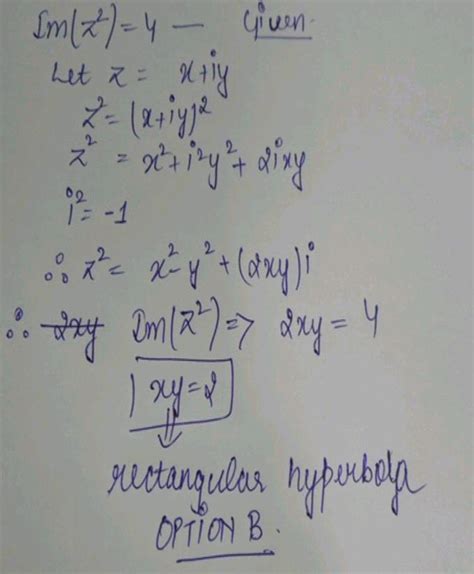 Im(z²) = 4 — Given.
Let z = x+iy
z² = (x+iy)²
z² = x²+i²y²+2ixy
i² = -1
∴ z² = x²-y²+(2xy)i
∴ 2xy Im(z²) => 2xy = 4
xy=2
⇓
rectangular hyperbola
OPTION B.